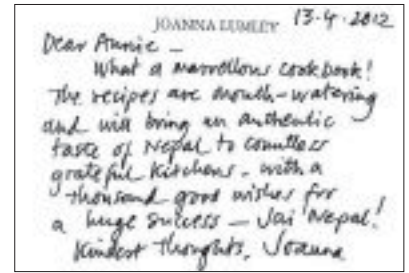 JOANNA LUMLEY 13-4-2012
Dear Annie –
What a marvellous cookbook!
The recipes are mouth-watering
and will bring an authentic
taste of Nepal to countless
grateful kitchens. With a
thousand good wishes for
a huge success – Jai Nepal!
Kindest thoughts, Joanna